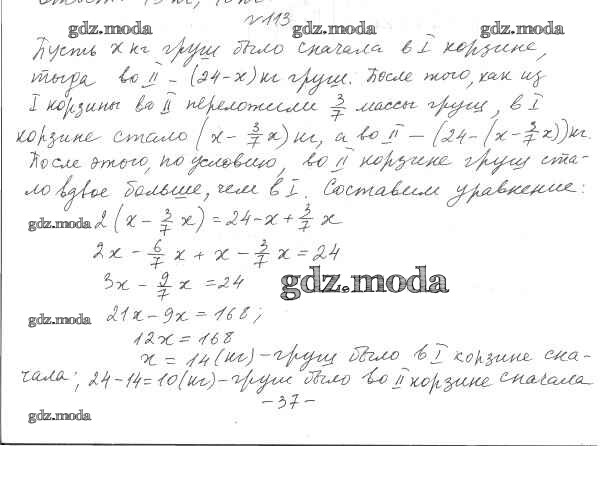 №113
gdz.moda gdz.moda gdz.moda
Пусть x кг груш было сначала в I корзине,
тогда во II – (24-x) кг груш. После того, как из
I корзины во II переложили 3/7 массы груш, в I
корзине стало (x - 3/7 x) кг, а во II – (24-(x-3/7 x)) кг.
После этого, по условию, во II корзине груш ста-
ло вдвое больше, чем в I. Составим уравнение:
gdz.moda 2(x - 3/7 x) = 24-x+ 3/7 x
2x - 6/7 x + x - 3/7 x = 24
3x - 9/7 x = 24
gdz.moda
gdz.moda 21x-9x = 168;
12x = 168
x = 14 (кг) – груш было в I корзине сна-
чала; 24-14=10 (кг) – груш было во II корзине сначала
-37-
gdz.moda